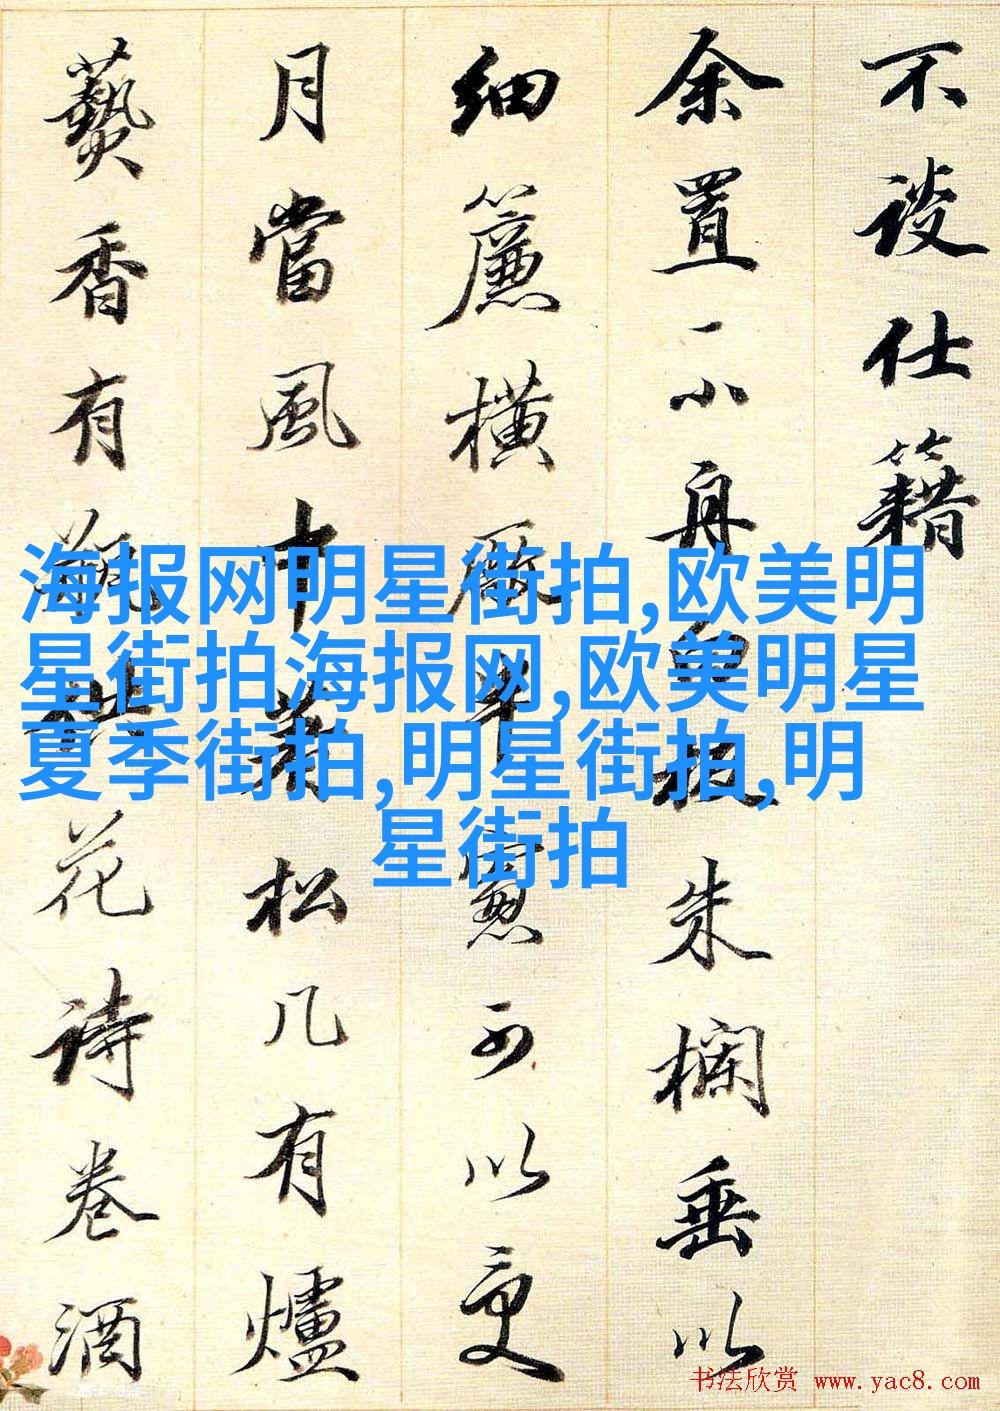 不談仕籍
余置一小舟板朱欄垂以
細簾橫厰半窻可以受
月當風中著松几有爐
爇香有瓶供花詩卷酒
海报网明星街拍,欧美明
星街拍海报网,欧美明星
夏季街拍,明星街拍,明
星街拍
书法欣赏 www.yac8.com